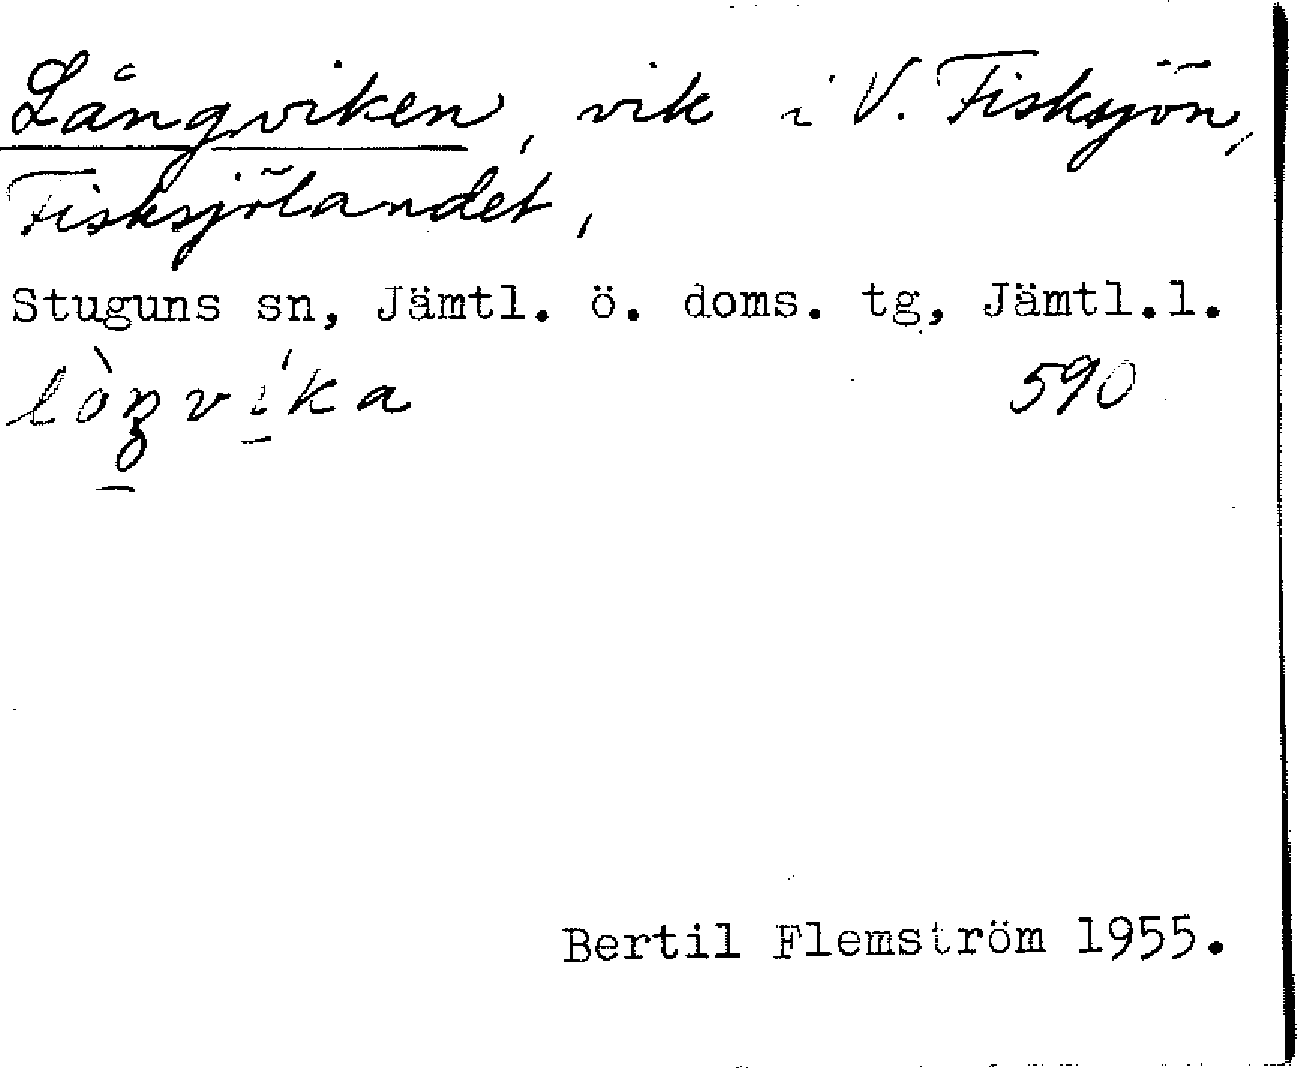 Långviken, vik i V. Fisksjön,
Fisksjölandet,
Stuguns sn, Jämtl. ö. doms. tg, Jämtl.l.
590
Bertil Flemström 1955.